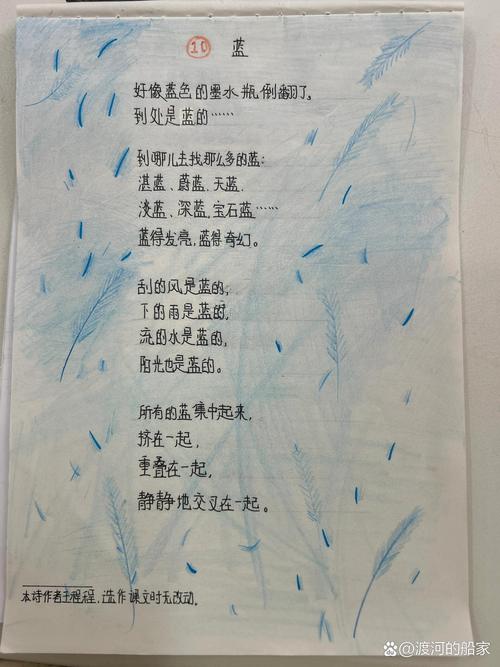 10 蓝
好像蓝色的墨水瓶倒翻了,
到处是蓝的……
到哪儿去找那么多的蓝:
湛蓝、蔚蓝、天蓝、
淡蓝、深蓝、宝石蓝……
蓝得发亮,蓝得奇幻。
刮的风是蓝的,
下的雨是蓝的,
流的水是蓝的,
阳光也是蓝的。
所有的蓝集中起来,
挤在一起,
重叠在一起,
静静地交叉在一起。
本诗作者王程程,选作课文时无改动。
@渡河的船家